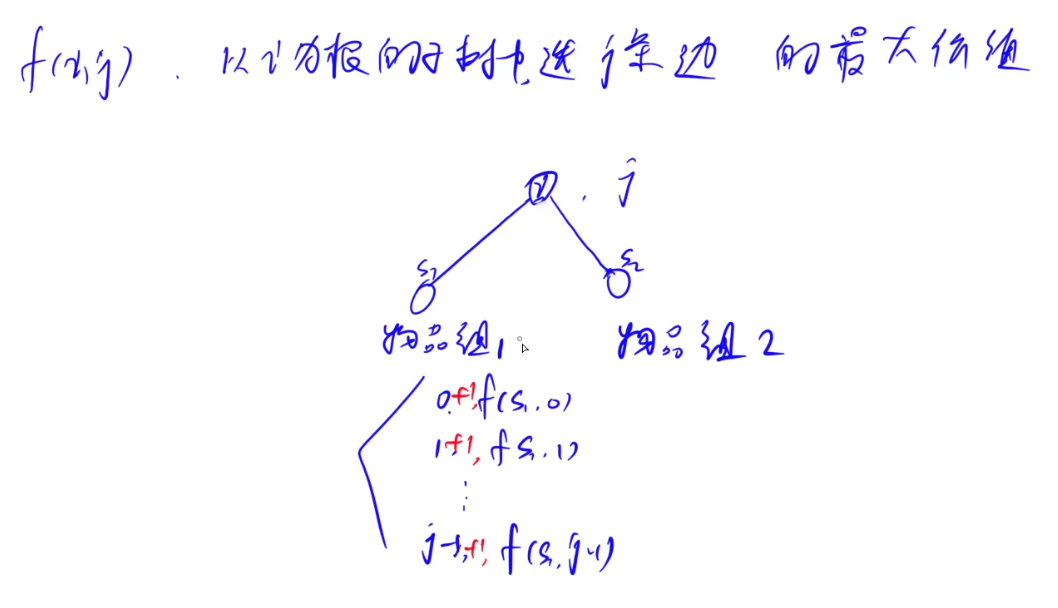 f(i,j). 以i为根的子树中选j条边 的最大价值
i . j
S1 S2
物品组1 物品组2
0+1, f(S1, 0)
1+1, f(S1, 1)
⋮
j-1+1, f(S1, j-1)